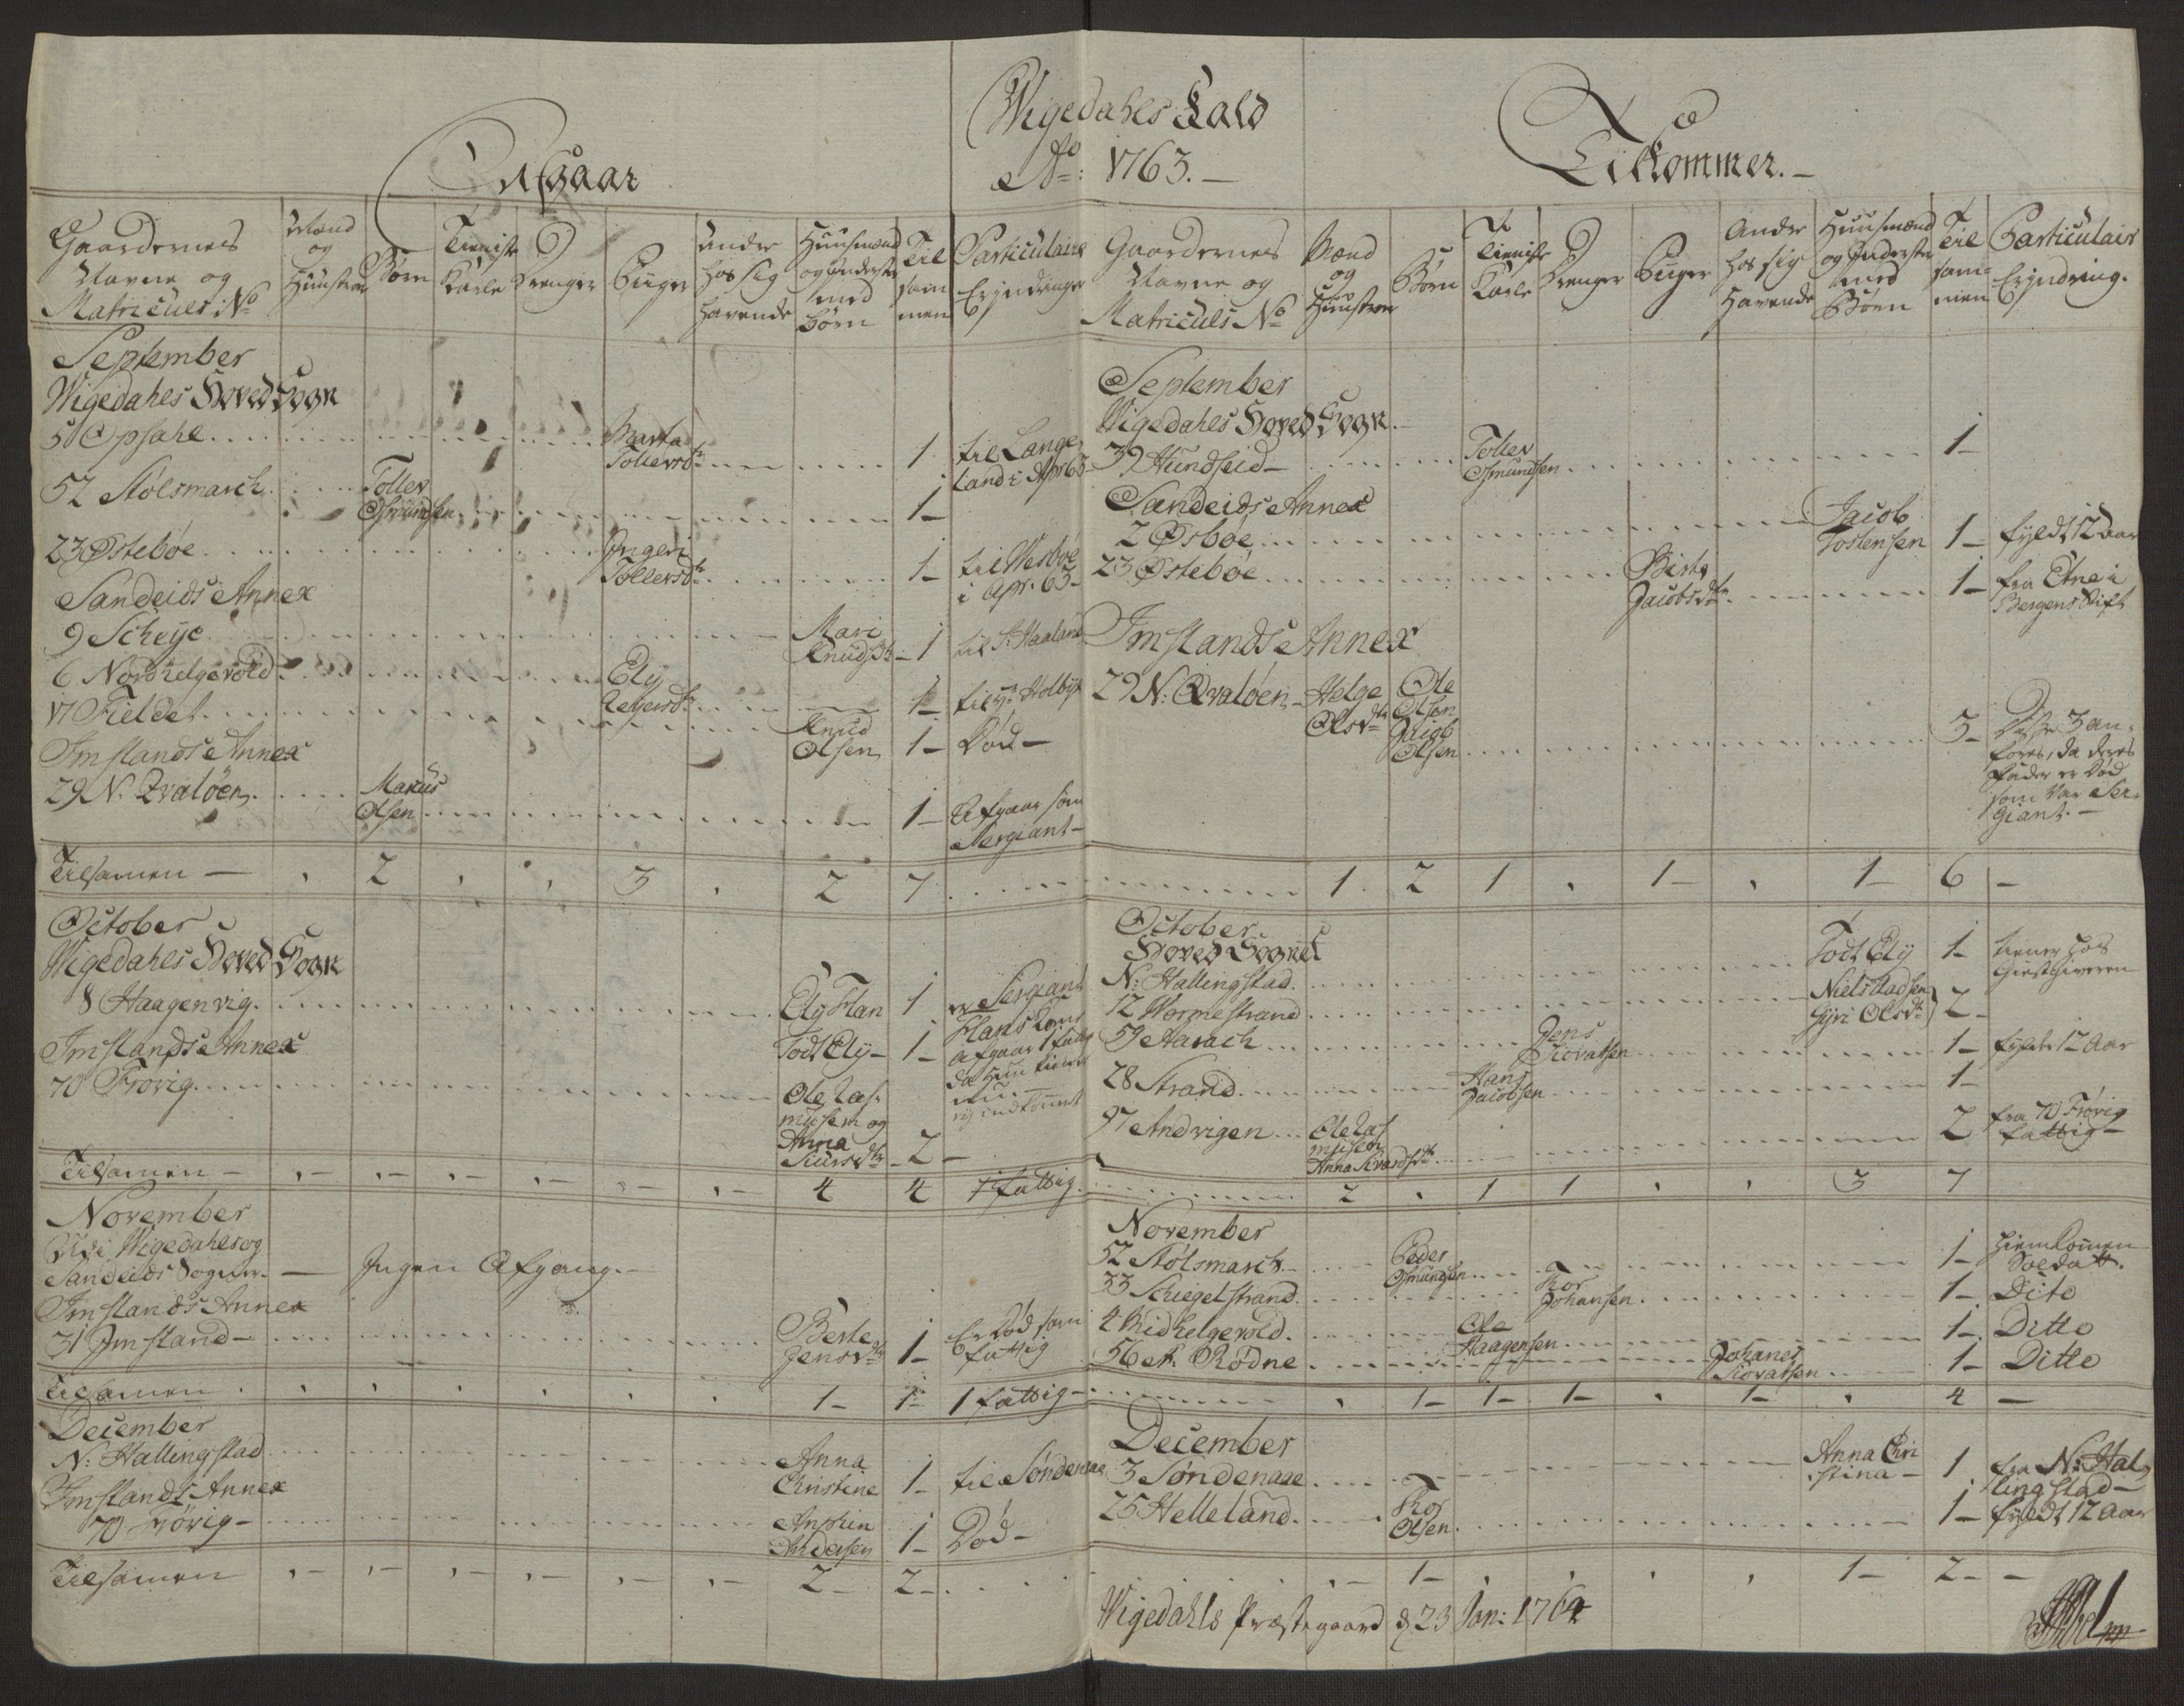 Wigedahls Kald
Ao: 1763.
Afgaar
Gaardernes Navne og Matriculs No
Mænd og Hustruer
Børn
Tieniste Karle
Drenger
Piiger
Andre hos sig havende
Huusmænd og Inderster med Børn
Til sammen
Particulaire Erindringer
September
Wigedahls Hoved Sogn
50 Opsahl Marta Tollevsdtr 1 til Lange land i Apr 63
52 Stølsmarch Tollev Osmundsen 1
23 Østebøe Ingeri Tollevsdtr 1 til Wesbøe i Apr. 63
Sandeids Annex
9 Scheye Mari Knudsdtr 1 til S. Haaland
6 Nordhelgevold Ely 1
17 Fieldet Knud Olsen 1 Død
Imslands Annex
29 N. Qvaløen Markus Olsen 1 Afgaar som Sergiant
Tilsamen 2 3 2 7
October
Wigedahls Hoved Sogn
8 Haagenvig Ely Flan 1 Sergiant
Todt Ely 1
Imslands Annex
70 Frøvig Ole Rasmusen og Anna Siursdtr 2
Tilsamen 4 4 1 fattig
November
Udi Wigedahls og
Sandeids Sogner Ingen Afgang
Imslands Annex
31 Imsland Berte Jensdtr 1 Er Død som fattig
Tilsamen 1 1 1 fattig
December
N: Hallingstad Anna Christine 1 til Søndenaae
Imslands Annex
70 Frøvig Andersen 1 Død
Tilsamen 2 2
Tilkommer.
Gaardernes Navne og Matriculs No
Mænd og Hustruer
Børn
Tieniste Karle
Drenger
Piiger
Andre hos sig Havende
Huusmænd og Inderster med Børn
Til sammen
Particulair Erindring.
September
Wigedahls Hoved Sogn
39 Hundseid Tollev Osmundsen 1
Sandeids Annex
2 Øsbøe Jacob Tostensen 1 fyldt 12 aar
23 Østebøe Birte Jacobsdtr 1 fra Etne i Bergens Stift
Imslands Annex
29 N: Qvaløen Helge Olsdtr Ole Olsen Jacob Olsen 3 Disse 3 anføres, da deres Fader er Død som var Sergiant.
1 2 1 1 1 6
October
Hoved Sognet
N: Hallingstad Todt Ely 1 tiener hos Giestgiveren
12 Wormestrand Niels Madsen Gyri Olsdtr 2
59 Aarach Jens Siovatsen 1 fyldt 12 Aar
28 Strand Hans Jacobsen 1
97 Andvigen Ole Rasmusen Anna Sivardsdtr 2 fra 70 Frøvig fattig
2 1 1 3 7
November
52 Stølsmarch Peder Osmundsen 1 hiemkommen Soldatt.
33 Schiegelstrand Tor Johansen 1 Dito
4 Midhelgevold Ole Haagensen 1 Ditto
56 A. Rødne Johanes Siovatsen 1 Ditto
1 1 1 1 4
December
3 Søndenaae Anna Christina 1 fra N: Hallingstad
25 Helleland Tor Olsen 1 fyldt 12 Aar
1 1 2
Wigedahls Præstegaard d 23 Jan: 1764